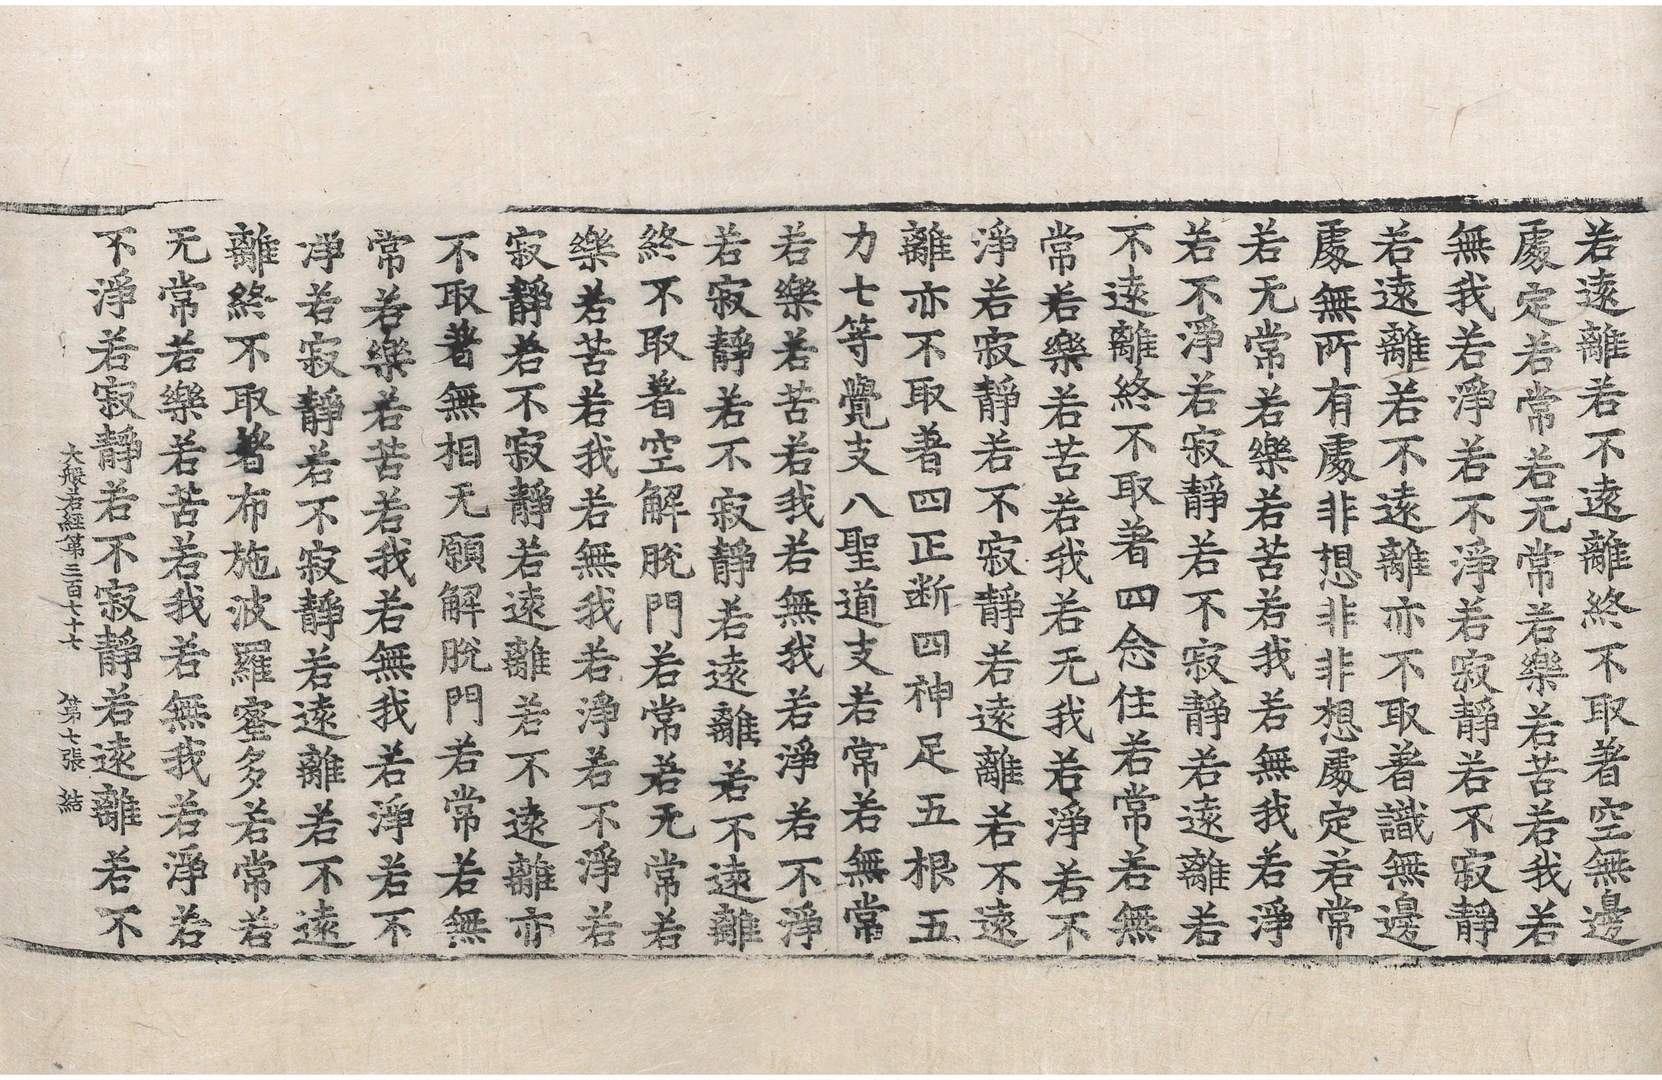 若遠離若不遠離終不取著空無邊
處定若常若无常若樂若苦若我若
無我若淨若不淨若寂靜若不寂靜
若遠離若不遠離亦不取著識無邊
處無所有處非想非非想處定若常
若无常若樂若苦若我若無我若淨
若不淨若寂靜若不寂靜若遠離若
不遠離終不取著四念住若常若無
常若樂若苦若我若无我若淨若不
淨若寂靜若不寂靜若遠離若不遠
離亦不取著四正断四神足五根五
力七等覺支八聖道支若常若無常
若樂若苦若我若無我若淨若不淨
若寂靜若不寂靜若遠離若不遠離
終不取著空解脫門若常若无常若
樂若苦若我若無我若淨若不淨若
寂靜若不寂靜若遠離若不遠離亦
不取著無相无願解脫門若常若無
常若樂若苦若我若無我若淨若不
淨若寂靜若不寂靜若遠離若不遠
離終不取著布施波羅蜜多若常若
无常若樂若苦若我若無我若淨若
不淨若寂靜若不寂靜若遠離若不
大般若經第三百七十七 第七張 結